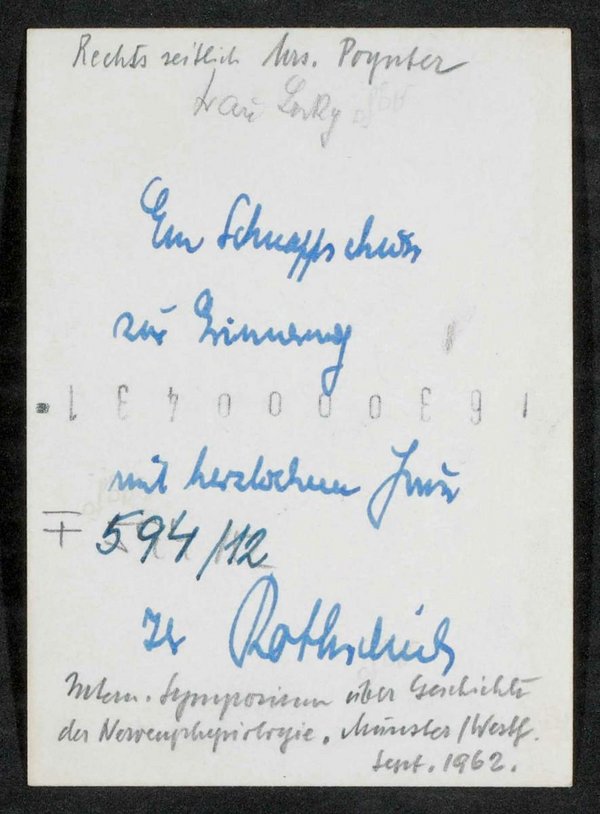 Rechts seitlich Mrs. Poynter
Frau
Ein Schnappschuss
zur Erinnerung
1 6 3 0 0 0 0 4 3 1
mit herzlichem Gruss
594/12
Ihr Rothschuh
Intern. Symposium über Geschichte
der Nervenphysiologie, Münster/Westf.
Sept. 1962.